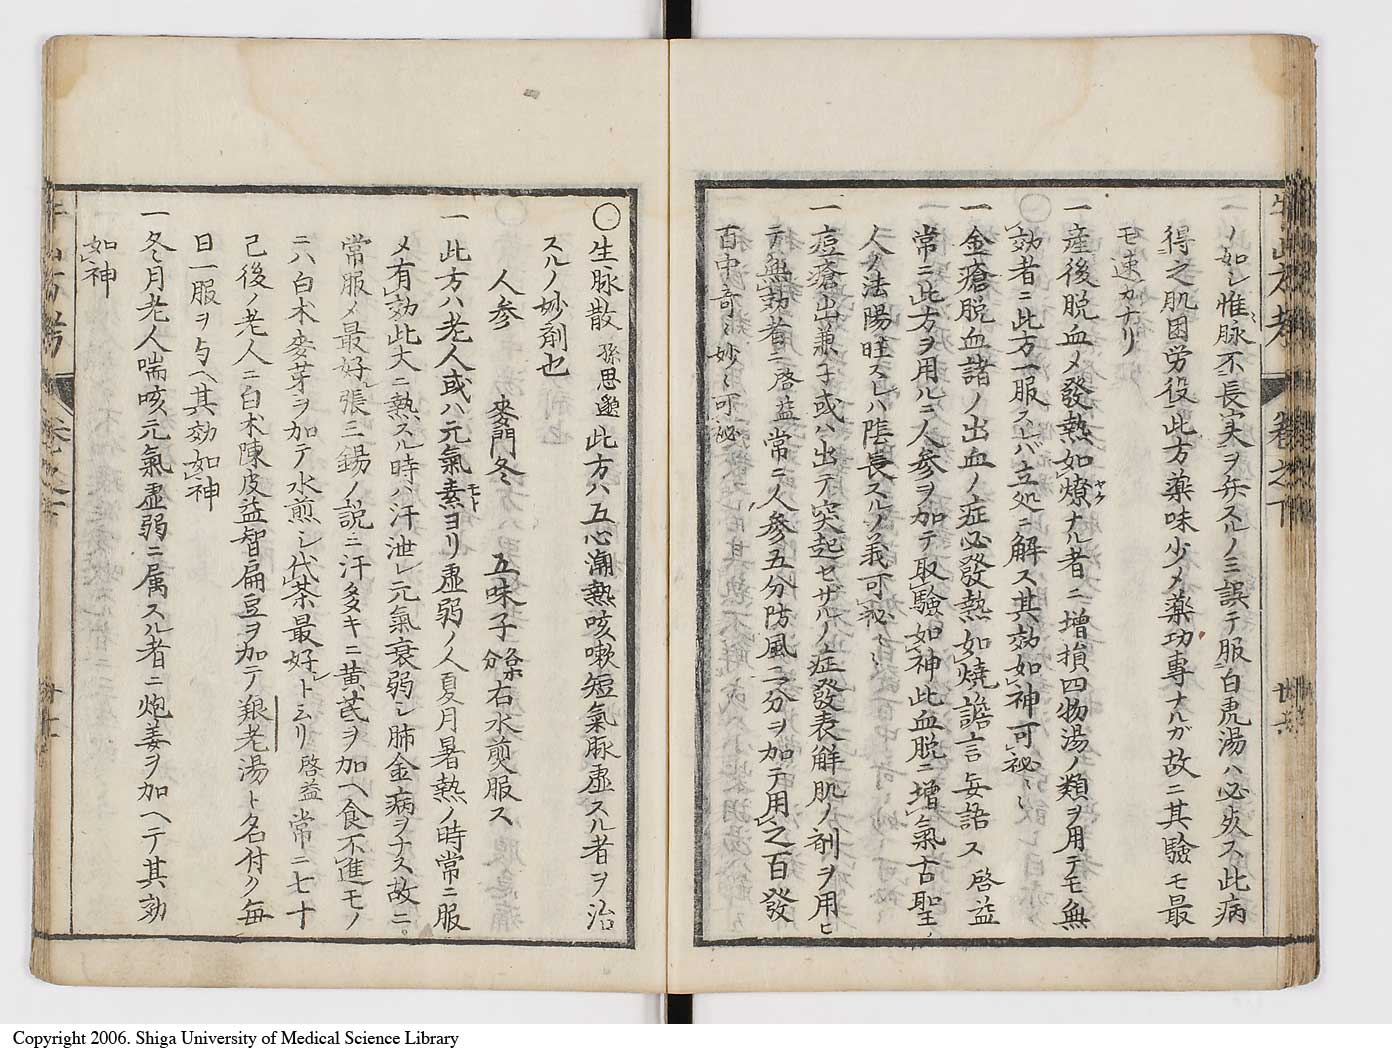 一ノ如シ惟脉不長実ヲ弁スルノミ誤テ服白虎湯ハ必死ス此病
得之肌困労役此方薬味少メ薬功専ナルガ故ニ其驗モ最
モ速カナリ
一産後脱血メ發熱如燎ナル者ニ増損四物湯ノ類ヲ用テモ無
効者ニ此方一服スレバ立処ニ解ス其効如神可秘〻
一金瘡脱血諸ノ出血ノ症必發熱如焼譫言妄語ス 啓益
常ニ此方ヲ用ルニ人参ヲ加テ取驗如神此血脱ニ増氣古聖
人ノ法陽旺スレハ陰長スルノ義可秘〻
一痘瘡出兼テ或ハ出テ突起セザルノ症發表解肌ノ剤ヲ用ヒ
テ無効者ニ啓益常ニ人参五分防風二分ヲ加テ用之百發
百中奇〻妙〻可秘
牛山方考 巻之下 廿六
〇生脉散 孫思邈 此方ハ五心潮熱咳嗽短氣脉虚スル者ヲ治
スルノ妙劑也
人参 麥門冬 五味子 各等分 右水煎服ス
一此方ハ老人或ハ元氣素ヨリ虚弱ノ人夏月暑熱ノ時常ニ服
メ有効此大ニ熱スル時ハ汗泄レ元氣衰弱シ肺金病ヲナス故ニ
常服メ最好張三錫ノ説ニ汗多キニ黄芪ヲ加ヘ食不進モノ
ニハ白朮麥芽ヲ加テ水煎シ代茶最好シト云リ 啓益 常ニ七十
已後ノ老人ニ白朮陳皮益智扁豆ヲ加テ艱老湯ト名付ケ毎
日一服ヲ与ヘ其効如神
一冬月老人喘咳元氣虚弱ニ属スル者ニ炮姜ヲ加ヘテ其効
如神
牛山方考 巻之下
Copyright 2006. Shiga University of Medical Science Library